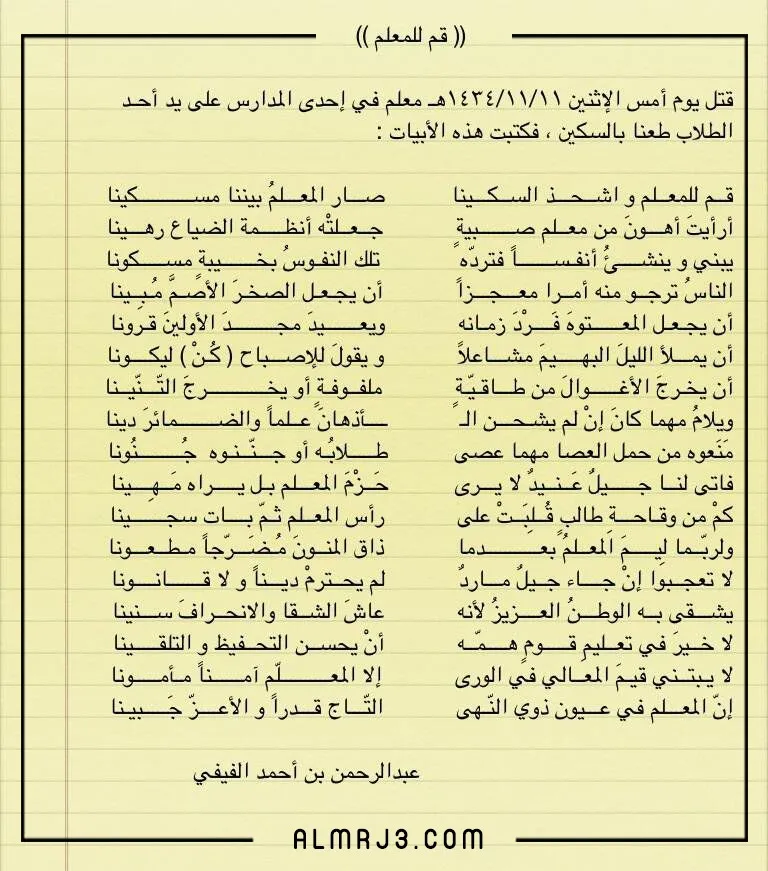 (( قم للمعلم ))
قتل يوم أمس الإثنين ١٤٣٤/١١/١١هـ معلم في إحدى المدارس على يد أحد
الطلاب طعنا بالسكين ، فكتبت هذه الأبيات :
قم للمعلم و اشحذ السكينا صار المعلمُ بيننا مسكينا
أرأيتَ أهونَ من معلم صبيةٍ جعلتْه أنظمة الضياع رهينا
يبني و ينشئُ أنفساً فتردّه تلك النفوسُ بخيبةٍ مسكونا
الناسُ ترجو منه أمرا معجزاً أن يجعل الصخرَ الأصمَّ مُبِينا
أن يجعل المعتوهَ فَرْدَ زمانه ويعيدَ مجدَ الأولينَ قرونا
أن يملأ الليلَ البهيمَ مشاعلاً و يقولَ للإصباح ( كُنْ ) ليكونا
أن يخرجَ الأغوالَ من طاقيّةٍ ملفوفةٍ أو يخرجَ التّنّينا
ويلامُ مهما كانَ إنْ لم يشحن الـ ـأذهانَ علماً والضمائرَ دينا
مَنَعوه من حمل العصا مهما عصى طلابُه أو جنّنوه جُنُونا
فاتى لنا جيلٌ عَنيدٌ لا يرى حَزْمَ المعلم بل يراه مَهِينا
كمْ من وقاحةِ طالبٍ قُلِبَتْ على رأس المعلم ثمّ بات سجينا
ولربّما لِيمَ المعلمُ بعدما ذاق المنونَ مُضَرّجاً مطعونا
لا تعجبوا إنْ جاء جيلٌ ماردٌ لم يحترمْ ديناً و لا قانونا
يشقى به الوطنُ العزيزُ لأنه عاشَ الشقا والانحرافَ سنينا
لا خيرَ في تعليمِ قومٍ همّه أنْ يحسن التحفيظ و التلقينا
لا يبتني قيمَ المعالي في الورى إلا المعلّم آمناً مأمونا
إنّ المعلم في عيون ذوي النّهى التّاج قدراً و الأعزّ جَبينا
عبدالرحمن بن أحمد الفيفي
ALMRJ3.COM